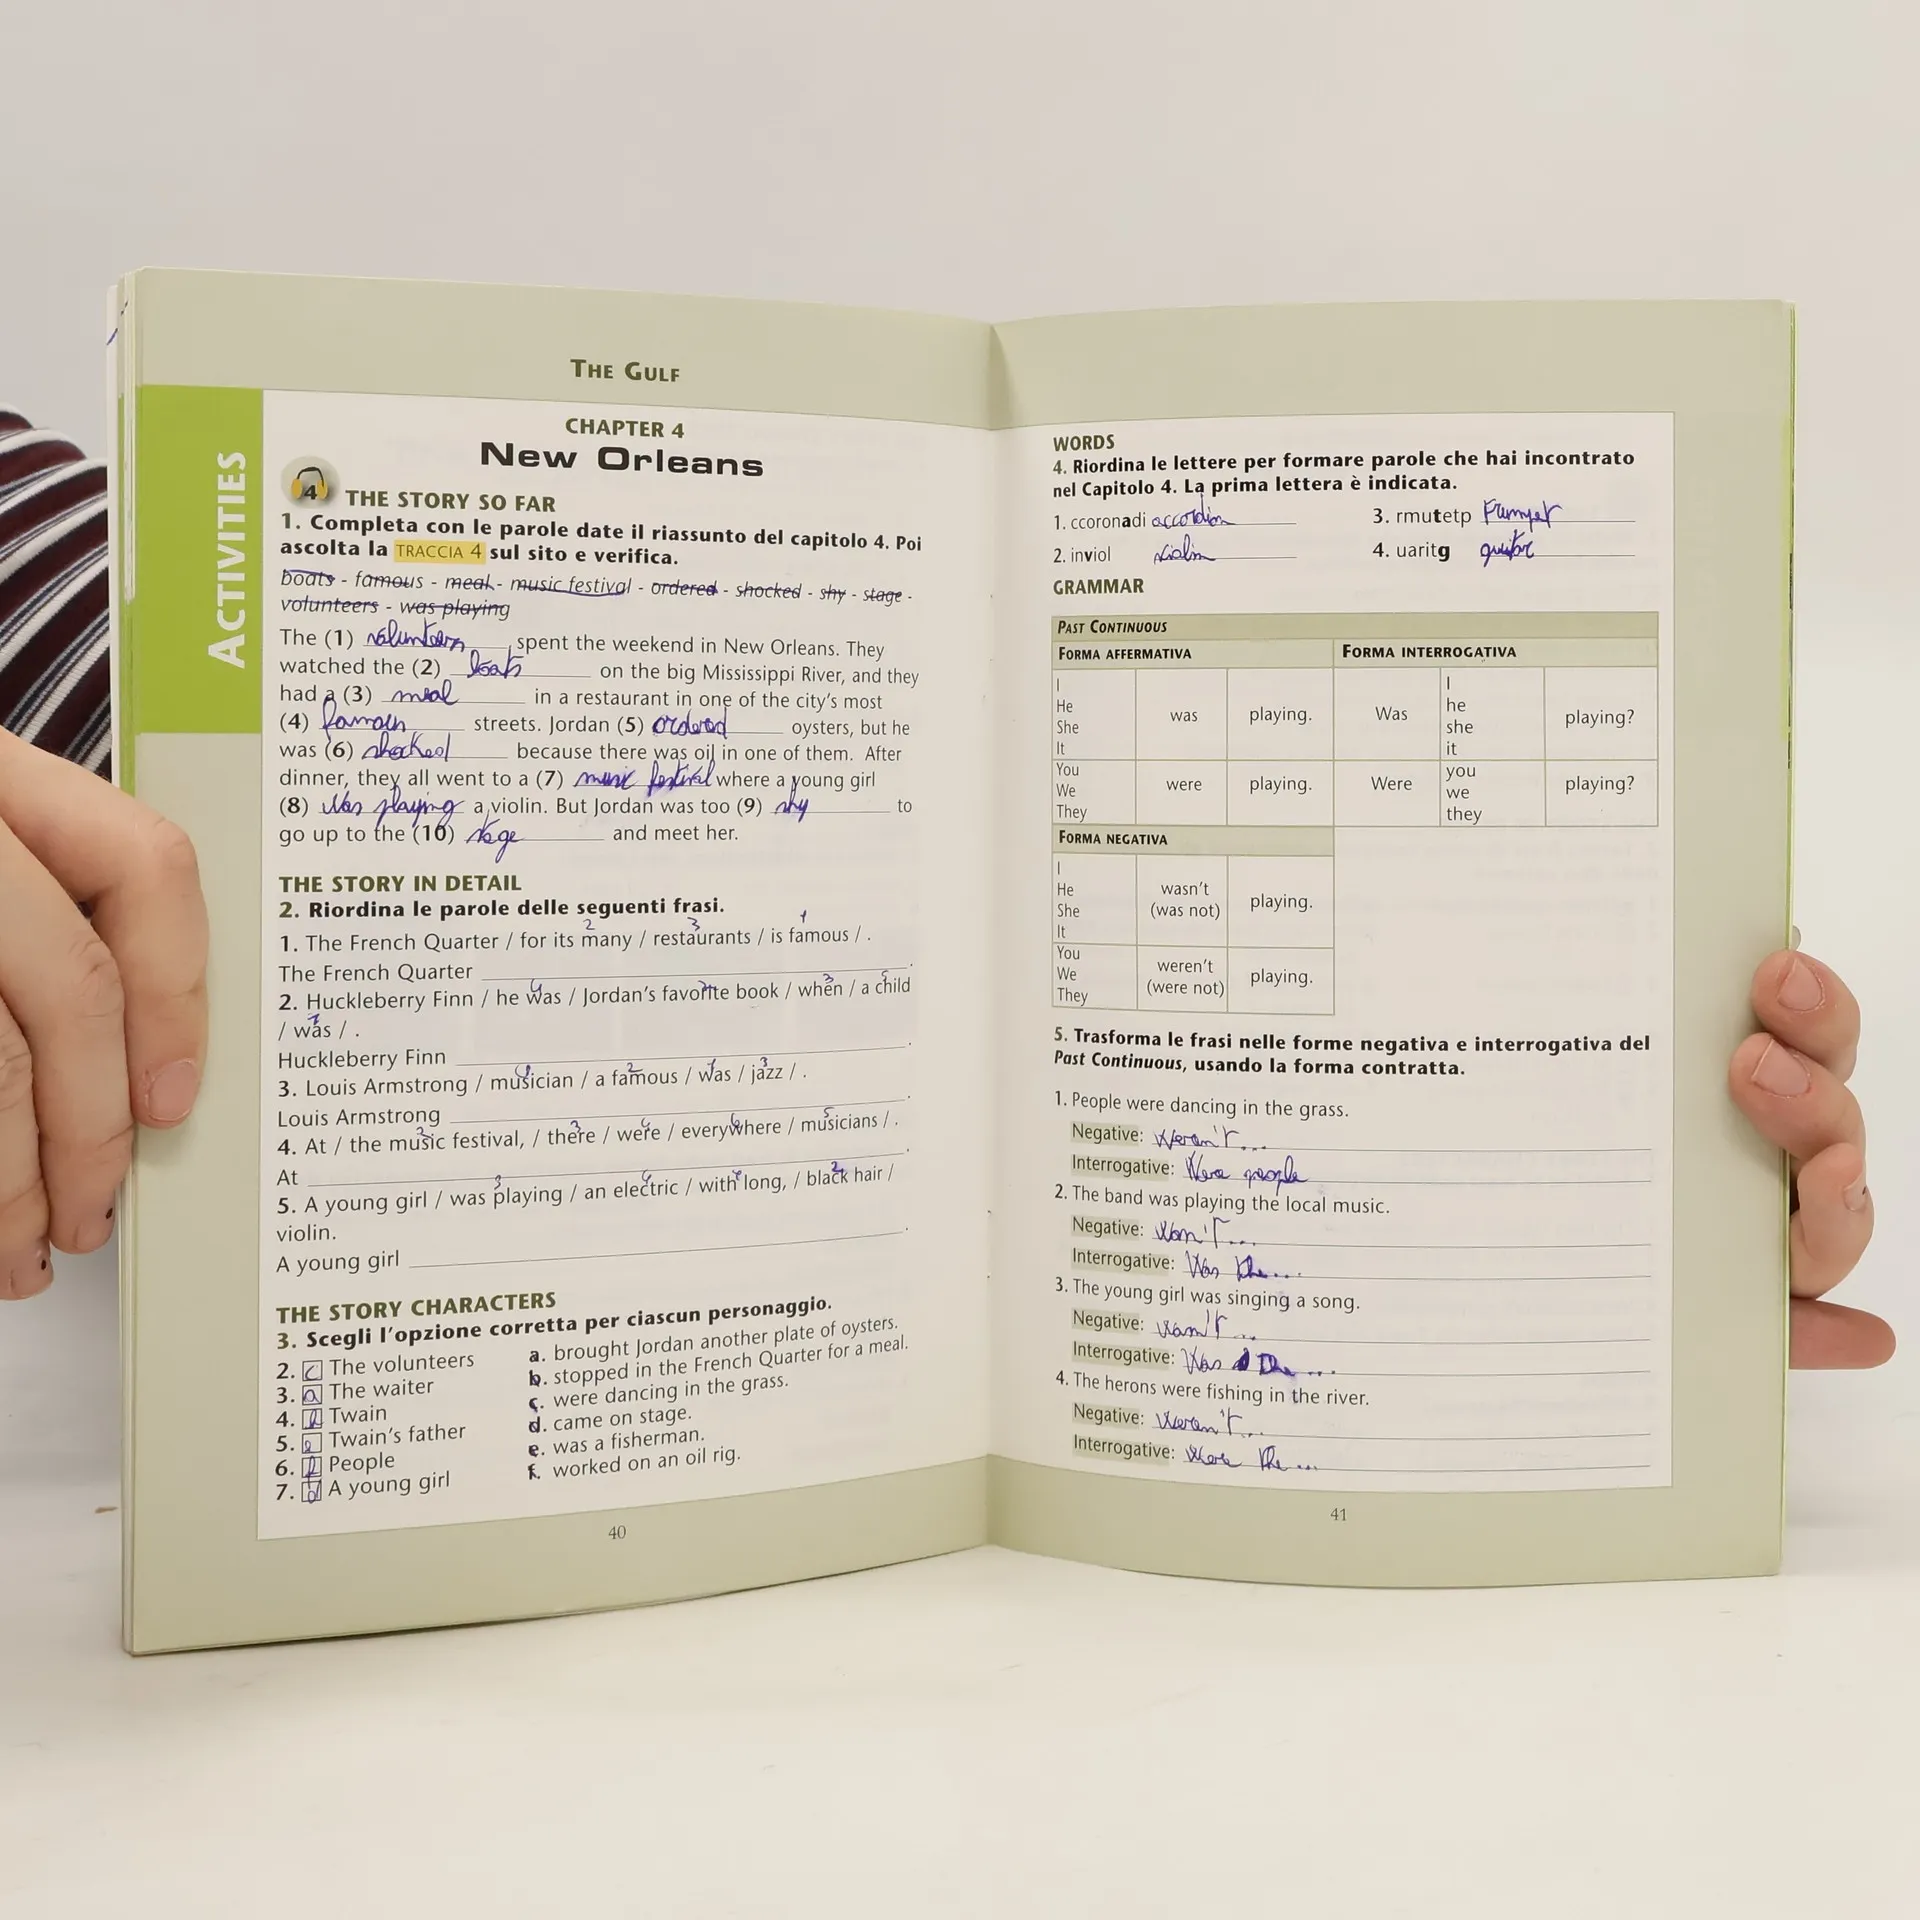 THE GULF
ACTIVITIES
CHAPTER 4
New Orleans
4
THE STORY SO FAR
1. Completa con le parole date il riassunto del capitolo 4. Poi
ascolta la TRACCIA 4 sul sito e verifica.
boats - famous - meal - music festival - ordered - shocked - shy - stage -
volunteers - was playing
The (1) volunteers spent the weekend in New Orleans. They
watched the (2) boats on the big Mississippi River, and they
had a (3) meal in a restaurant in one of the city's most
(4) famous streets. Jordan (5) ordered oysters, but he
was (6) shocked because there was oil in one of them. After
dinner, they all went to a (7) music festival where a young girl
(8) was playing a violin. But Jordan was too (9) shy to
go up to the (10) stage and meet her.
THE STORY IN DETAIL
2. Riordina le parole delle seguenti frasi.
2 3 1
1. The French Quarter / for its many / restaurants / is famous / .
The French Quarter .
2. Huckleberry Finn / he was / Jordan's favorite book / when / a child
/ was / .
Huckleberry Finn .
3. Louis Armstrong / musician / a famous / was / jazz / .
Louis Armstrong .
4. At / the music festival, / there / were / everywhere / musicians / .
At .
5. A young girl / was playing / an electric / with long, / black hair /
violin.
A young girl .
THE STORY CHARACTERS
3. Scegli l'opzione corretta per ciascun personaggio.
2. c The volunteers
3. a The waiter
4. Twain
5. e Twain's father
6. People
7. d A young girl
a. brought Jordan another plate of oysters.
b. stopped in the French Quarter for a meal.
c. were dancing in the grass.
d. came on stage.
e. was a fisherman.
f. worked on an oil rig.
40
WORDS
4. Riordina le lettere per formare parole che hai incontrato
nel Capitolo 4. La prima lettera è indicata.
1. ccoronadi 3. rmutetp trumpet
2. inviol violin 4. uaritg guitar
GRAMMAR
PAST CONTINUOUS
FORMA AFFERMATIVA FORMA INTERROGATIVA
I
He
She
It
was playing.
Was
I
he
she
it
playing?
You
We
They
were playing.
Were
you
we
they
playing?
FORMA NEGATIVA
I
He
She
It
wasn't
(was not)
playing.
You
We
They
weren't
(were not)
playing.
5. Trasforma le frasi nelle forme negativa e interrogativa del
Past Continuous, usando la forma contratta.
1. People were dancing in the grass.
Negative: Weren't...
Interrogative: Were people
2. The band was playing the local music.
Negative: Wasn't...
Interrogative: Was the...
3. The young girl was singing a song.
Negative: Wasn't...
Interrogative: Was the...
4. The herons were fishing in the river.
Negative: Weren't...
Interrogative: Were the...
41